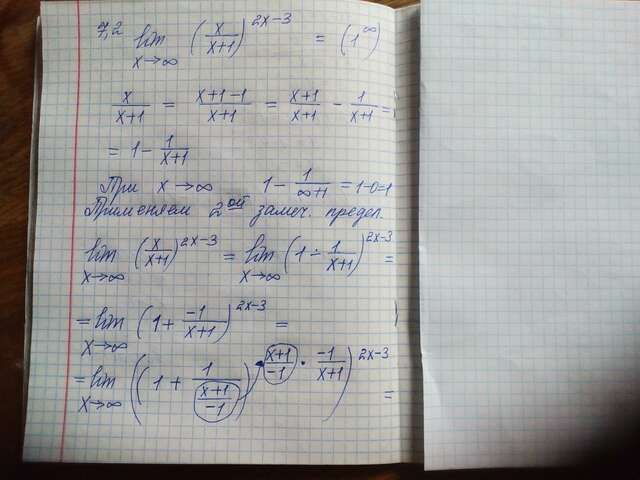 7,2 lim x→∞ (x/(x+1))^(2x-3) = (1^∞)
x/(x+1) = (x+1-1)/(x+1) = (x+1)/(x+1) - 1/(x+1) =
= 1 - 1/(x+1)
При x→∞ 1 - 1/(∞+1) = 1-0=1
Применяем 2ой замеч. предел.
lim x→∞ (x/(x+1))^(2x-3) = lim x→∞ (1 - 1/(x+1))^(2x-3) =
= lim x→∞ (1 + -1/(x+1))^(2x-3) =
= lim x→∞ ((1 + 1/((x+1)/-1))^((x+1)/-1 · -1/(x+1)))^(2x-3) =